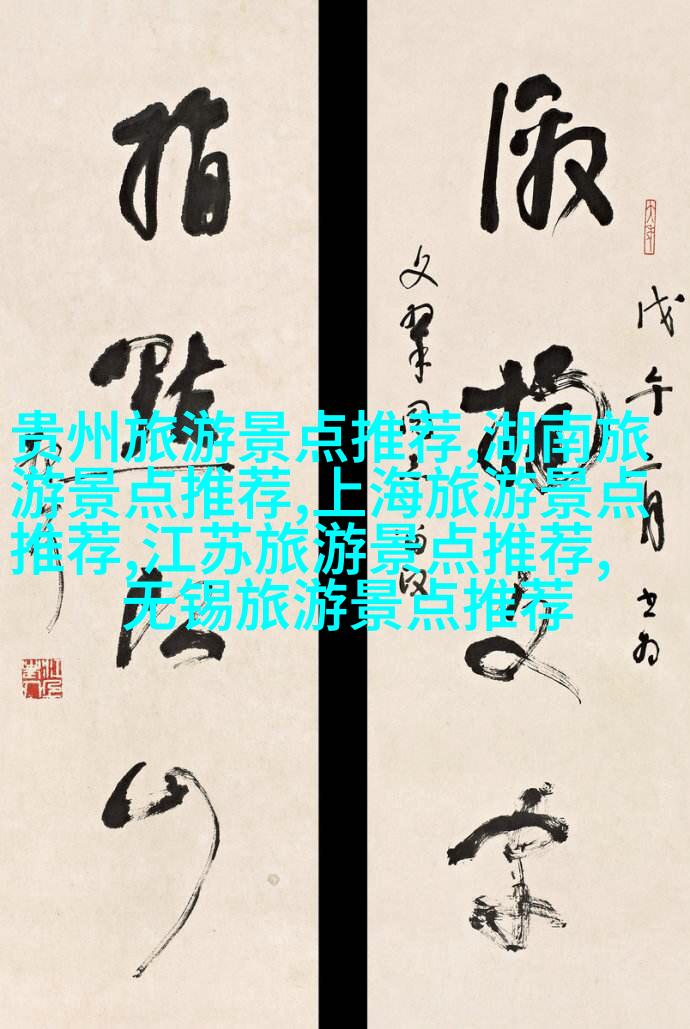 激揚文字
戊午一月書為
指點江山
贵州旅游景点推荐,湖南旅
游景点推荐,上海旅游景点
推荐,江苏旅游景点推荐,
无锡旅游景点推荐